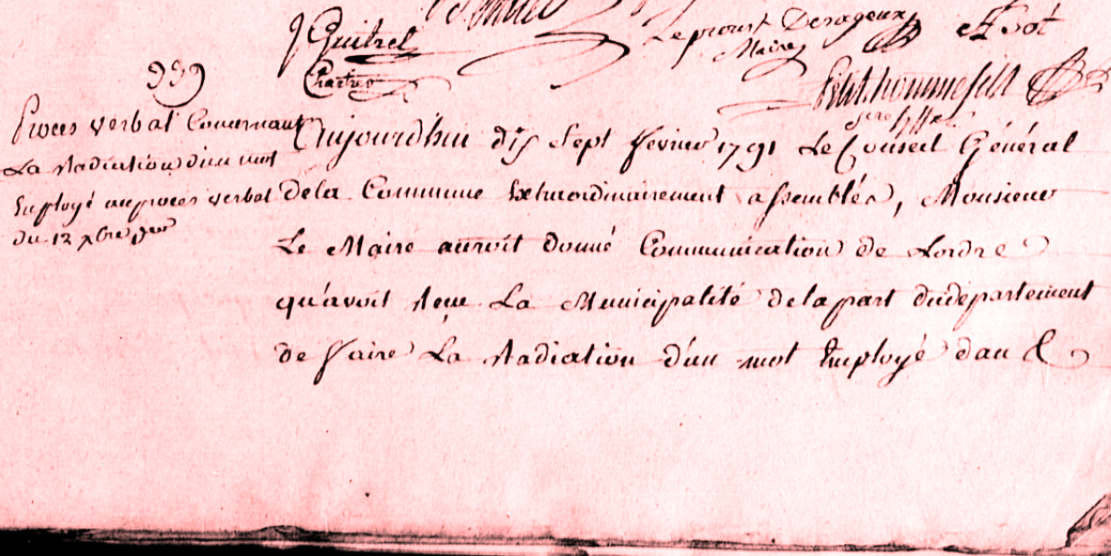 J Guitrel
Leproust Desageux
Maire
Chartres
939
Proces verbal Concernant
La Radiation d'un mot
Employé au proces verbal
du 12 xbre der
Aujourdhui dix sept fevrier 1791 Le Conseil Général
de la Commune Extraordinairement assemblés, Monsieur
Le Maire auroit donné Communication de Lordre
qu'avoit reçu La Municipalité de la part du département
de faire La Radiation d'un mot Employé dans